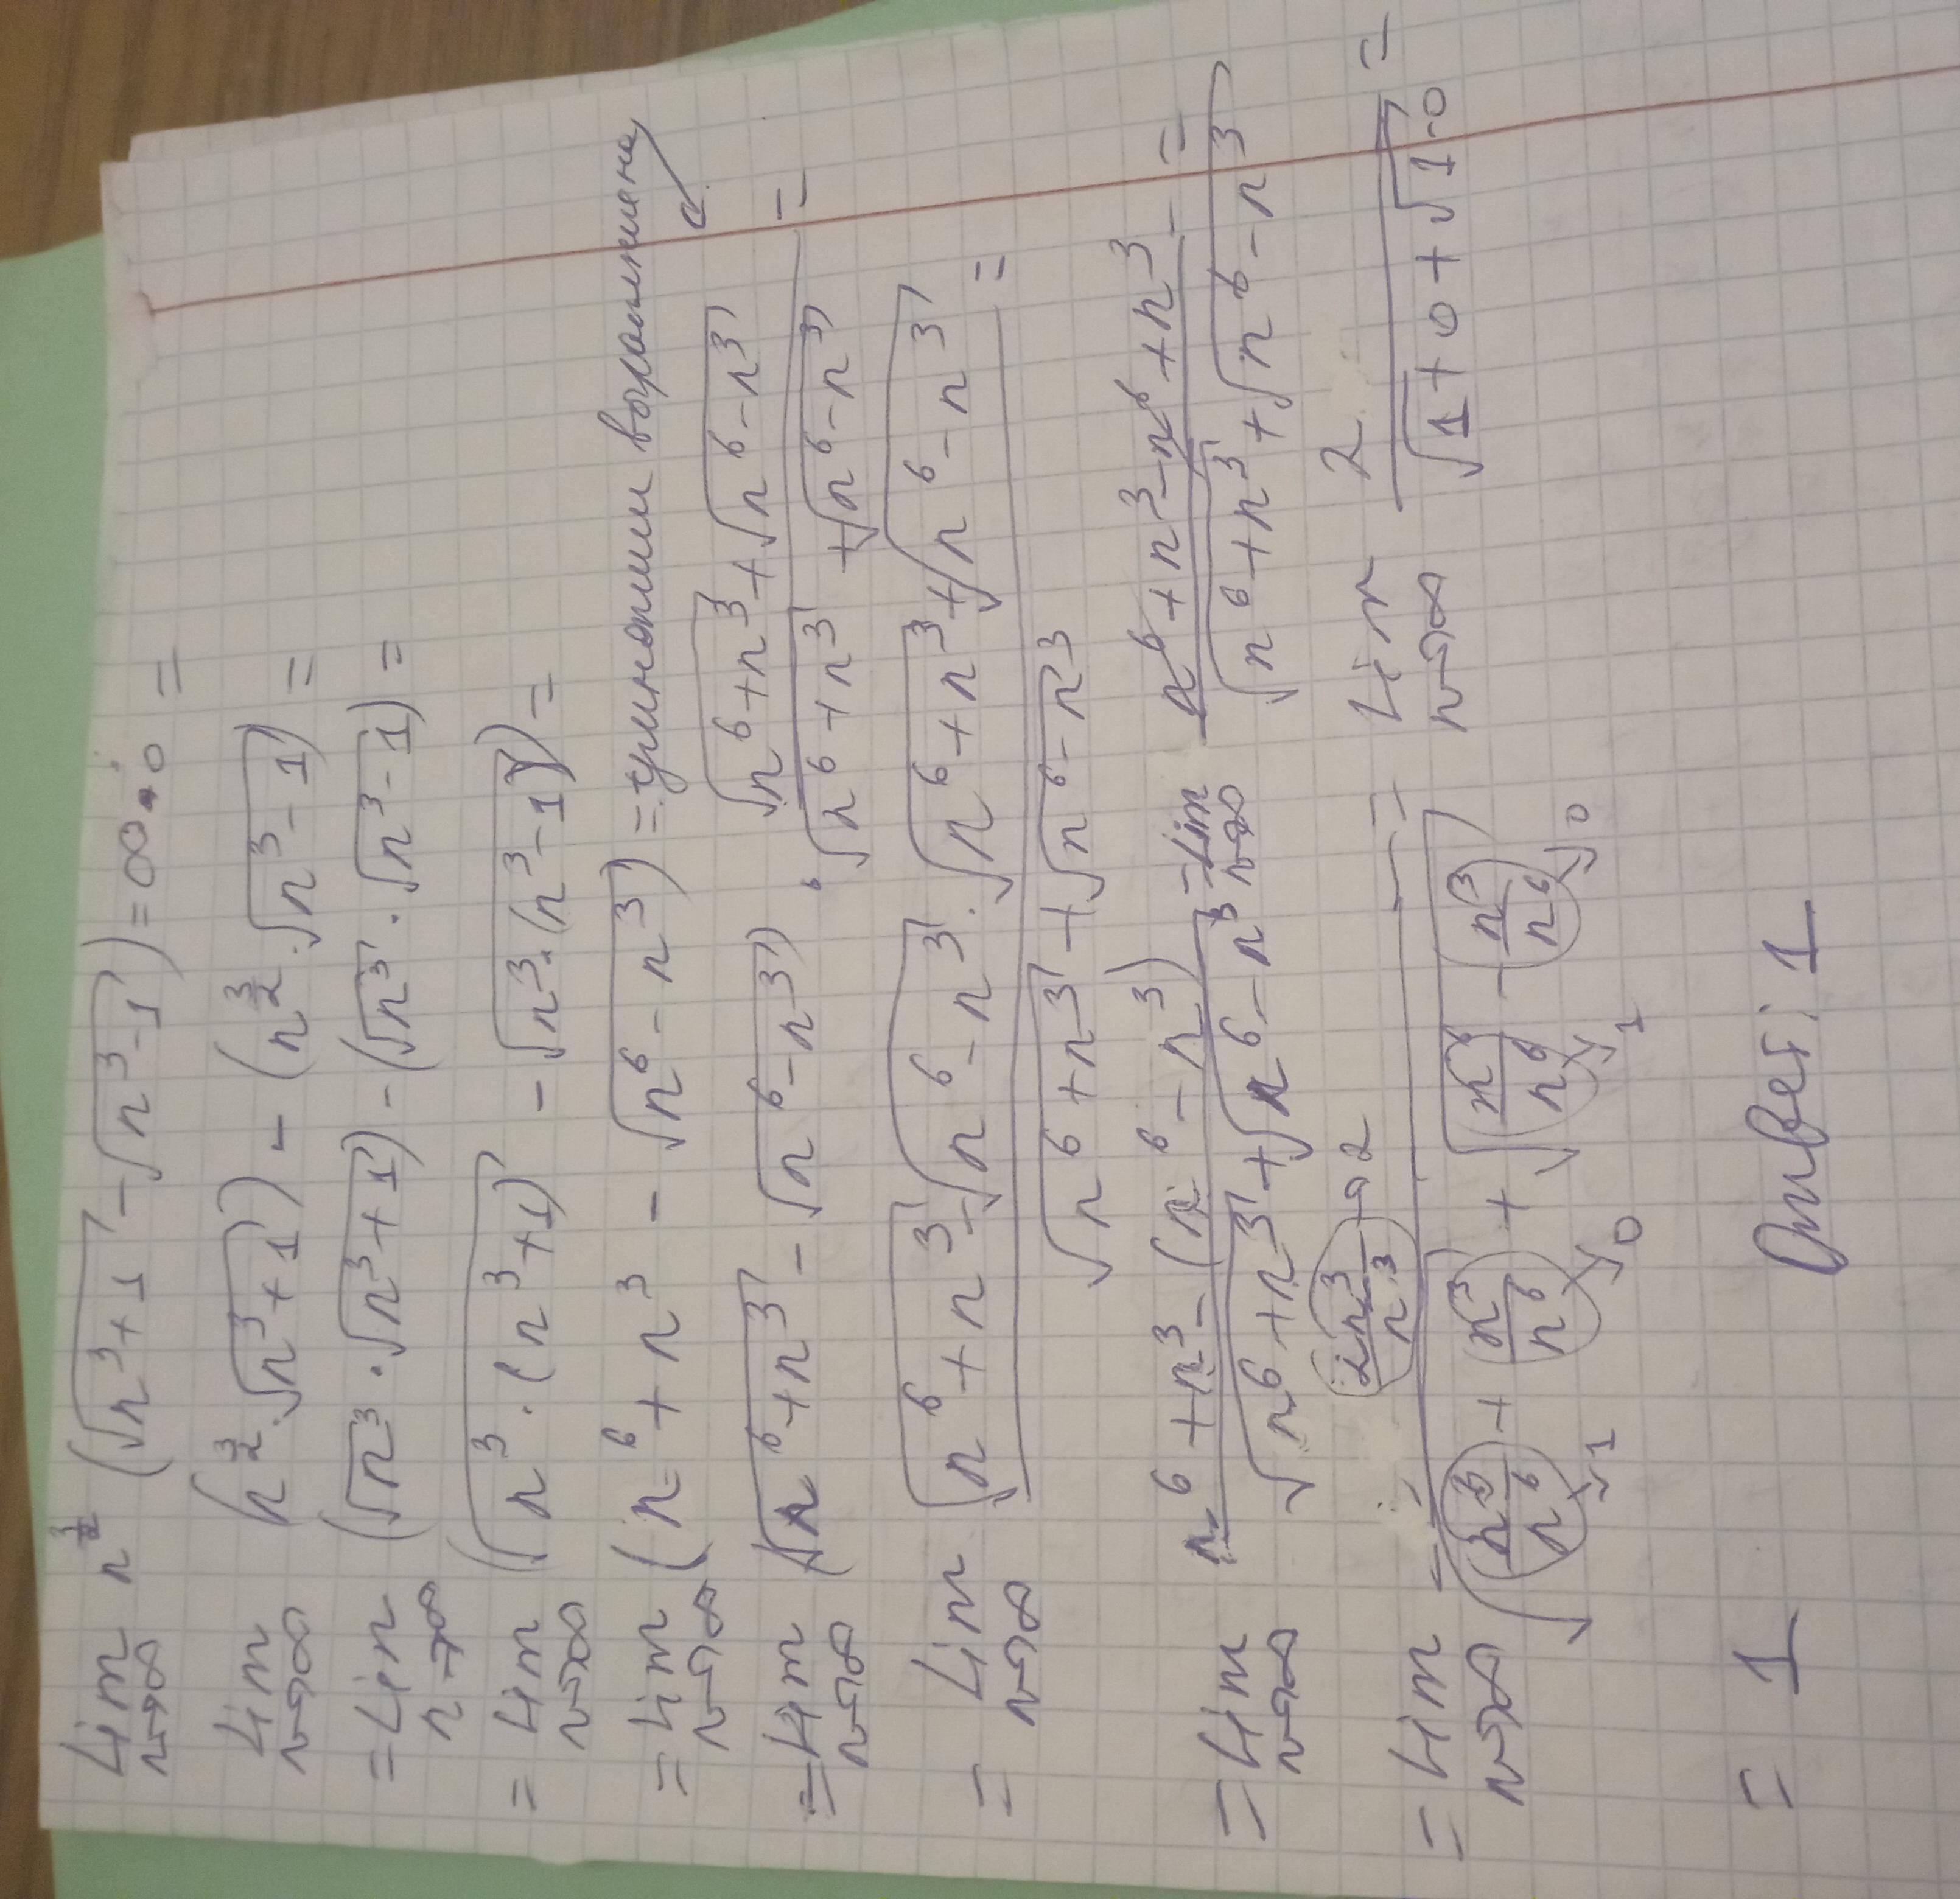 lim n→∞ n^(3/2) (√(n³+1) - √(n³-1)) = ∞·0 =
lim n→∞ (n^(3/2)·√(n³+1)) - (n^(3/2)·√(n³-1)) =
= lim n→∞ (√n³·√(n³+1)) - (√n³·√(n³-1)) =
= lim n→∞ (√(n³·(n³+1)) - √(n³·(n³-1))) =
= lim n→∞ (n⁶+n³ - √(n⁶-n³)) = умножим
= lim n→∞ (√(n⁶+n³) - √(n⁶-n³))·(√(n⁶+n³)+√(n⁶-n³))/(√(n⁶+n³)+√(n⁶-n³)) =
= lim n→∞ (√(n⁶+n³)-√(n⁶-n³)·√(n⁶+n³)+√(n⁶-n³))/(√(n⁶+n³)+√(n⁶-n³)) =
= lim n→∞ (n⁶+n³-(n⁶-n³))/(√(n⁶+n³)+√(n⁶-n³)) = lim n→∞ (n⁶+n³-n⁶+n³)/(√(n⁶+n³)+√(n⁶-n³)) =
= lim n→∞ (2n³/n³ →2)/(√(n⁶/n⁶ →1 + n³/n⁶ →0) + √(n⁶/n⁶ →1 - n³/n⁶ →0)) = lim n→∞ 2/(√1+0+√1-0) =
= 1 Ответ: 1